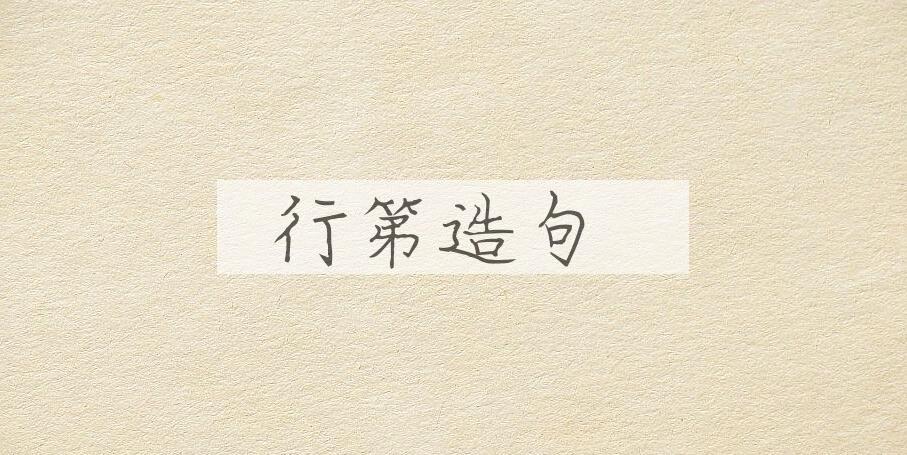 行第造句